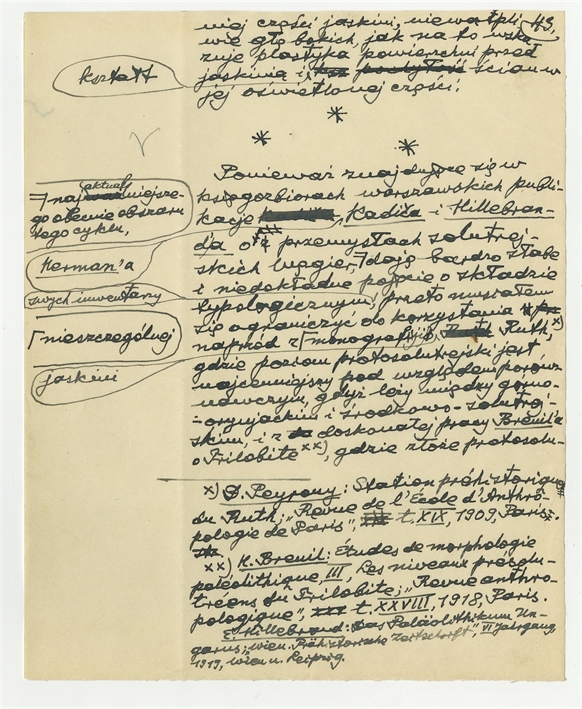 niej części jaskini, niewątpli-
wie głębokich, jak na to wska-
zuje plastyka powierzchni przed
jaskinią i ścian w
jej oświetlonej części.
kształt
* * *
Ponieważ znajdujące się w
księgozbiorach warszawskich publi-
kacje Kadiča i Hillebran-
da o przemysłach solutrej-
skich Węgier, dają bardzo słabe
i niedokładne pojęcie o składzie
typologicznym, przeto musiałem
się ograniczyć do korzystania
naprzód z monografii Ruth, x)
gdzie poziom protosolutrejski jest
najcenniejszy pod względem porów-
nawczym, gdyż leży między górno-
-oryniackim i środkowo-solutrej-
skim, i z doskonałej pracy Breuil'a
o Trilobite xx), gdzie złoże protosolu-
aktual
najniejsze-
go obecnie obszaru
tego cyklu,
Herman'a
swych inwentarzy
nieszczególnej
jaskini
x) D. Peyrony: Station préhistorique
du Ruth; "Revue de l'École d'Anthro-
pologie de Paris", t. XIX, 1909, Paris.
xx) H. Breuil: Études de morphologie
paléolithique, III, Les niveaux présolu-
tréens du Trilobite; "Revue anthro-
pologique", t. XXVIII, 1918, Paris.
E. Hillebrand: Das Paläolithikum Un-
garns; Wien. Prähistorische Zeitschrift", VI Jahrgang,
1919, Wien u. Leipzig.